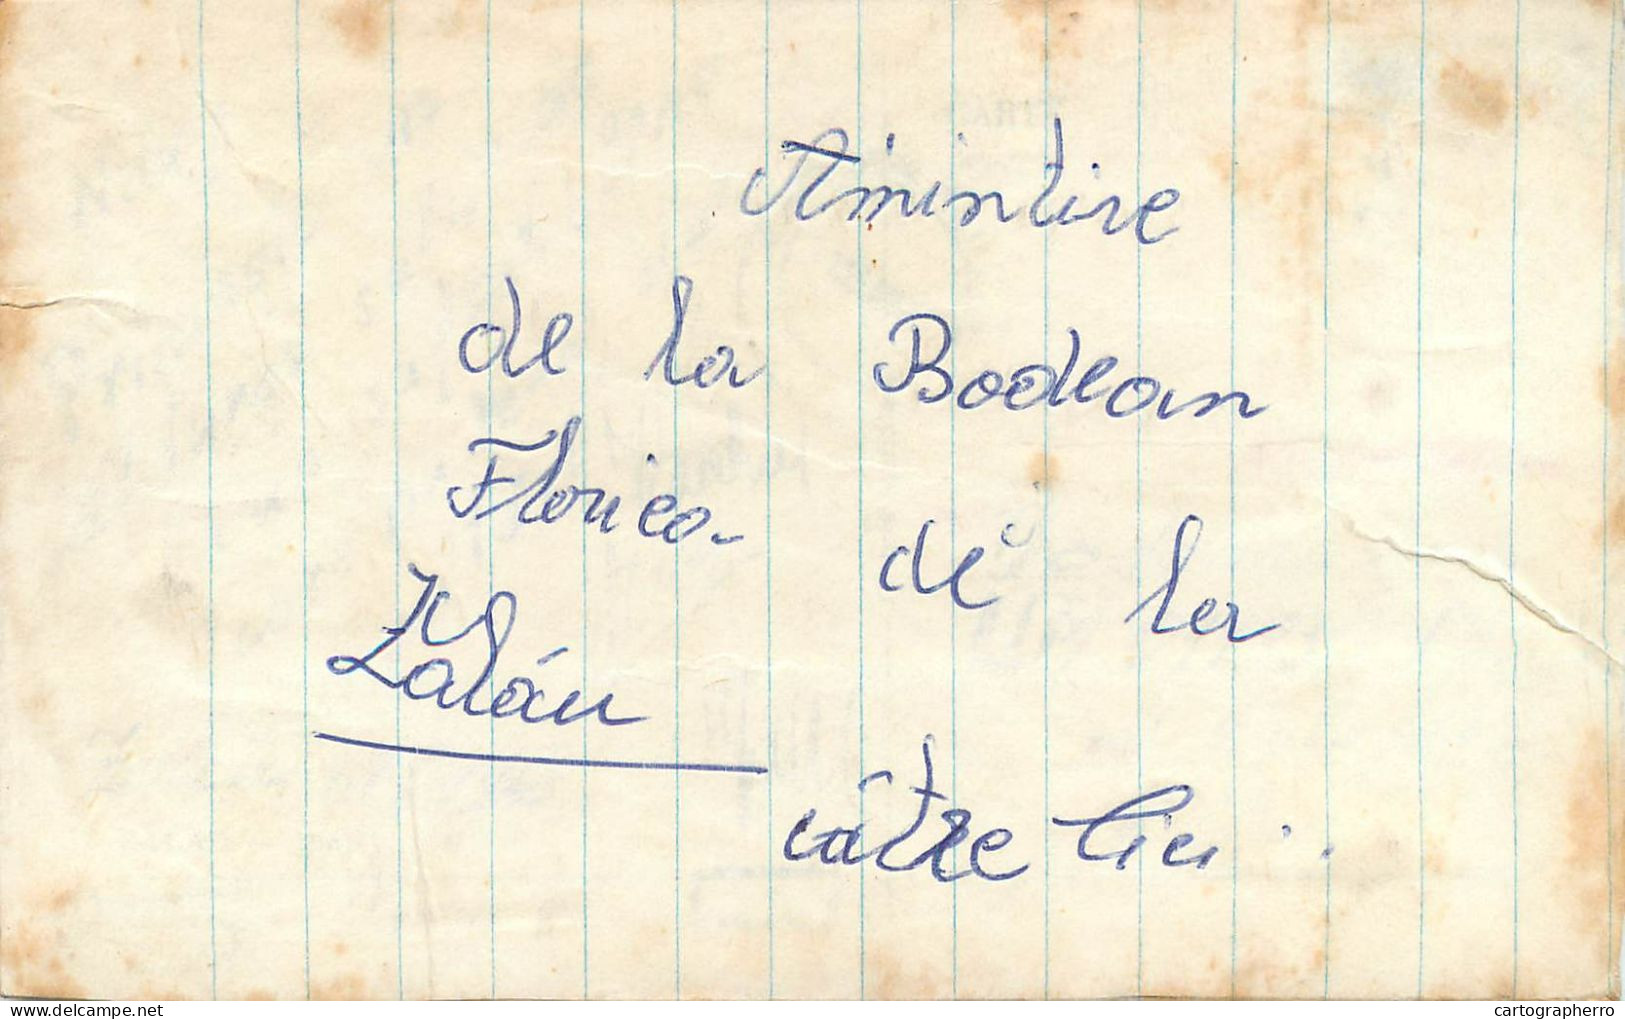 Amintire
de la Bodean
Florica de la
Zalău
către Cici.
delcampe.net
cartographerro